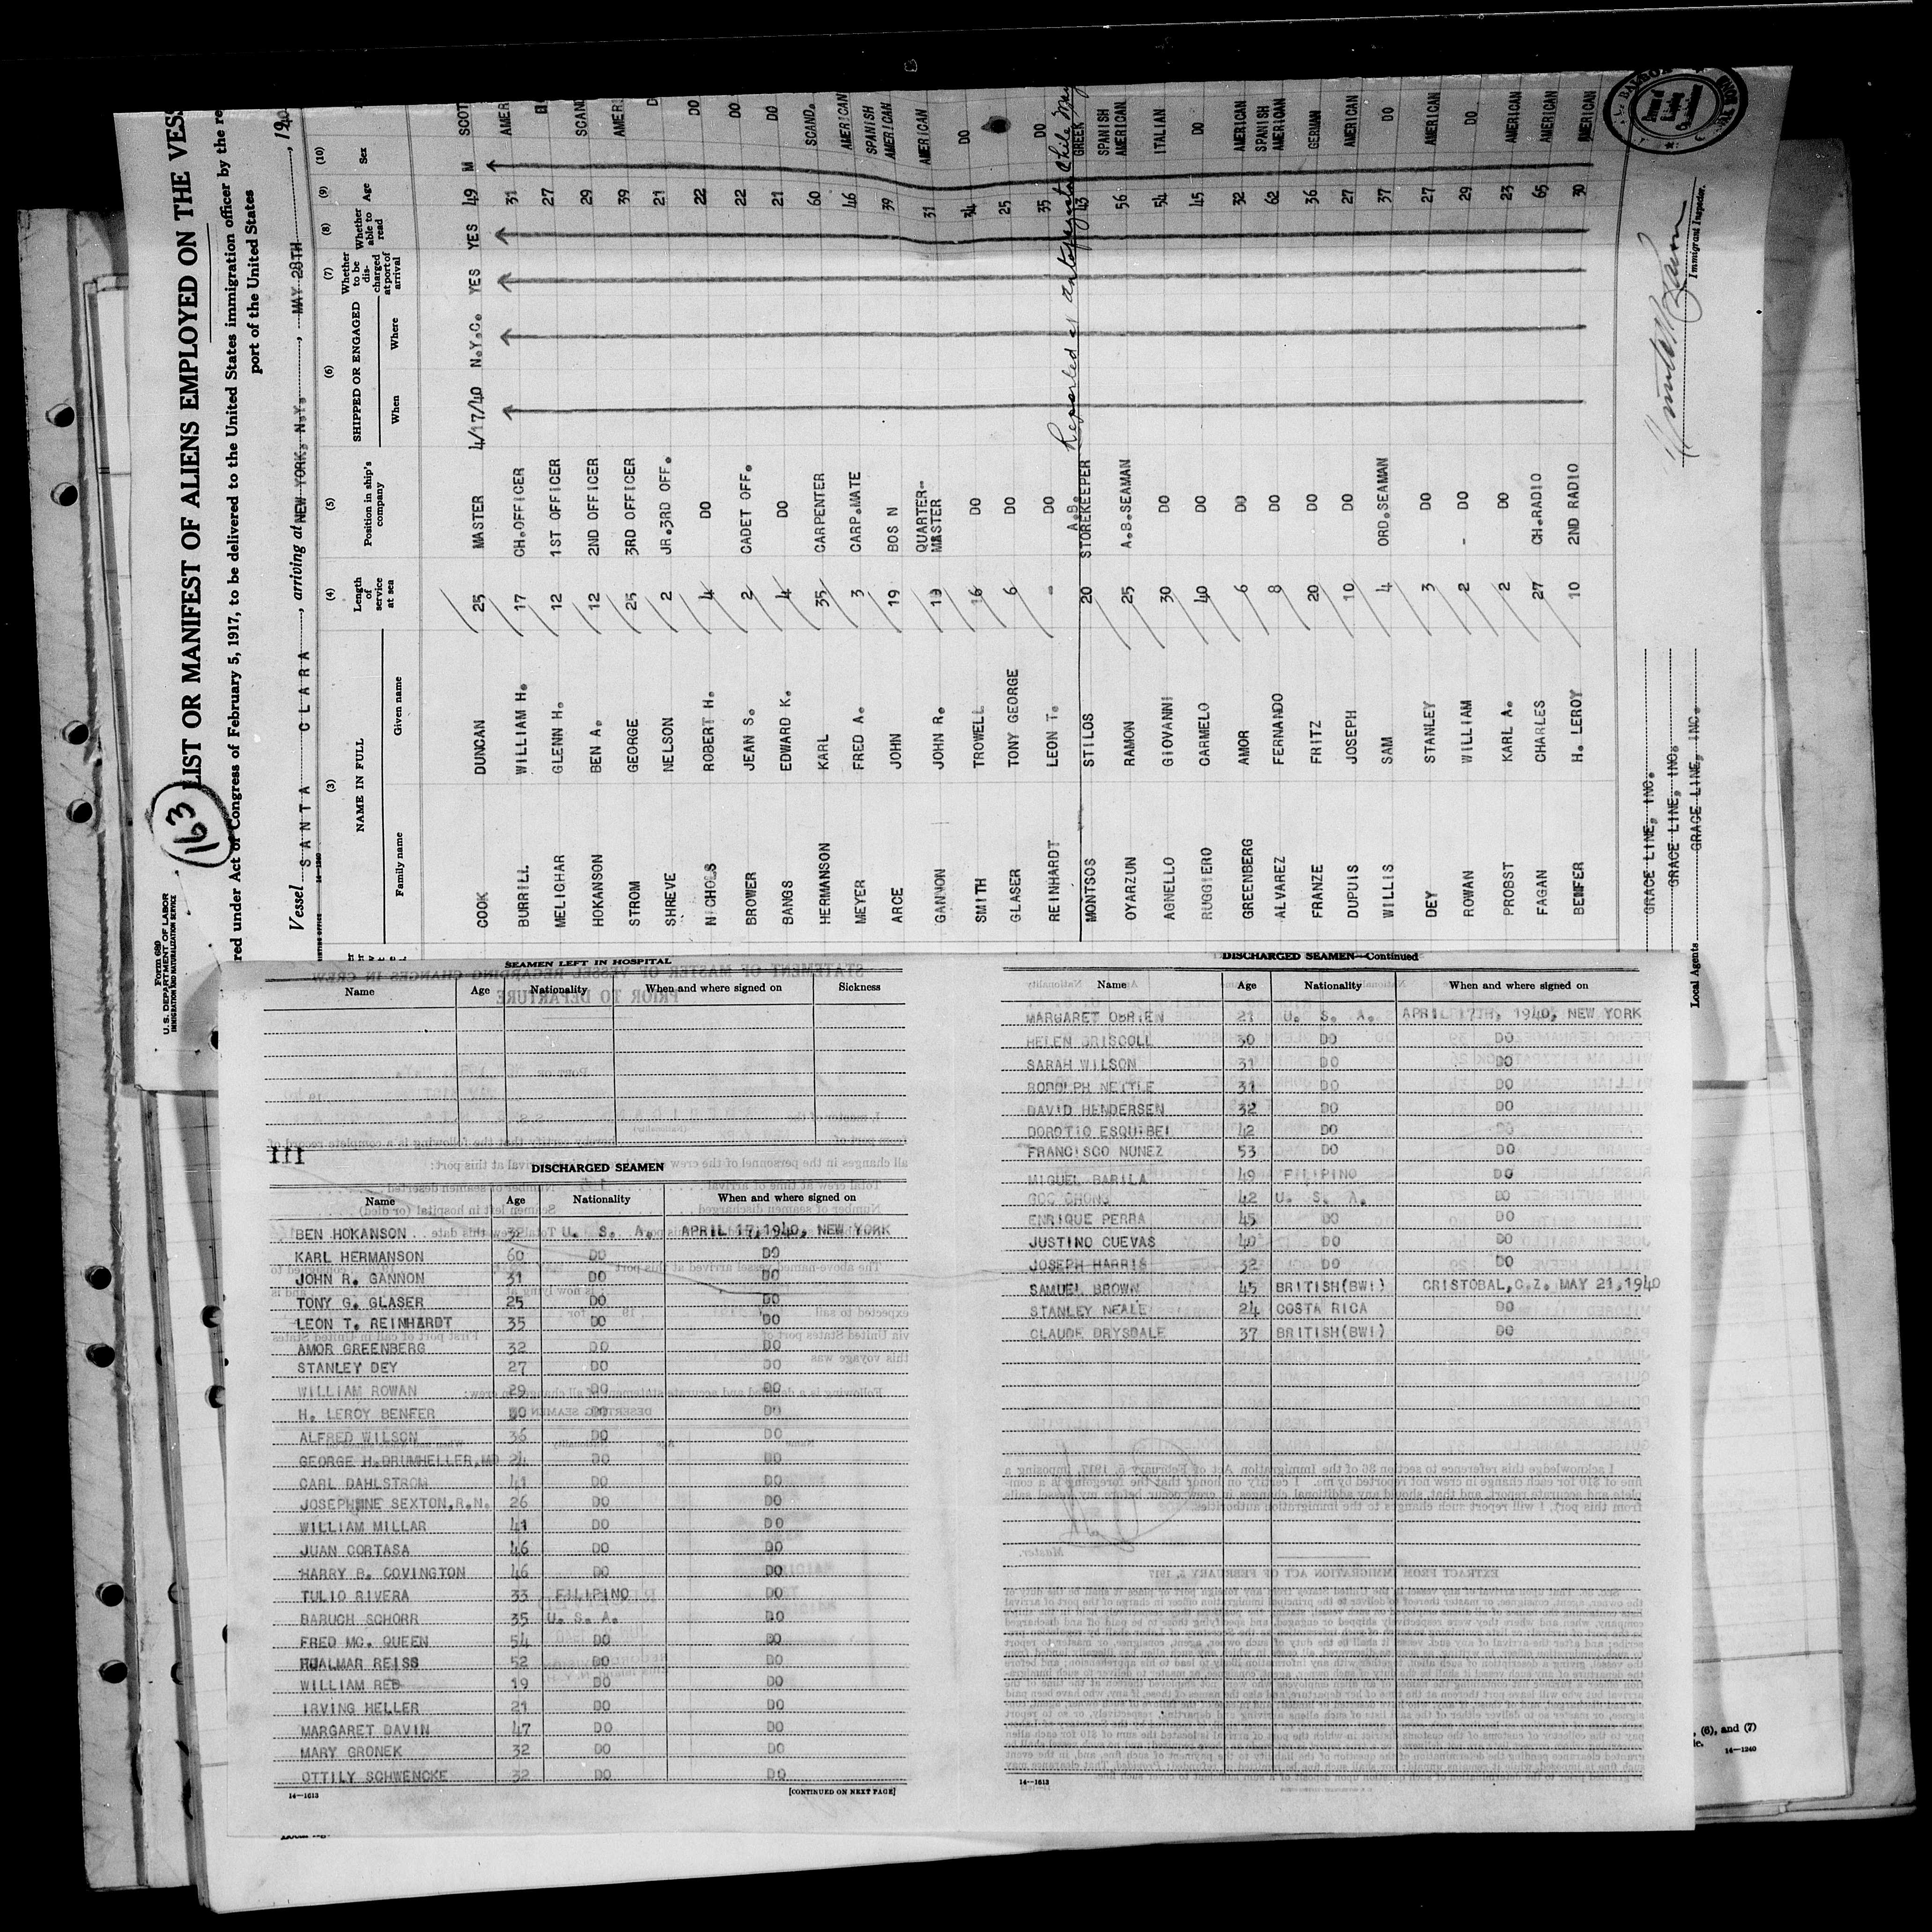 Form 689
U.S. DEPARTMENT OF LABOR
IMMIGRATION AND NATURALIZATION SERVICE
163
LIST OR MANIFEST OF ALIENS EMPLOYED ON THE VESS
red under Act of Congress of February 5, 1917, to be delivered to the United States immigration officer by the re
port of the United States
Vessel SANTA CLARA, arriving at NEW YORK, N.Y., MAY 28TH, 1940
(3) (4) (5) (6) (7) (8) (9) (10)
NAME IN FULL Length of service at sea Position in ship's company SHIPPED OR ENGAGED Whether to be discharged at port of arrival Whether able to read Age Sex
Family name Given name When Where
COOK DUNCAN 25 MASTER 4/17/40 N.Y.C. YES YES 49 M SCOT
BURRILL WILLIAM H. 17 CH.OFFICER 31 AMER
MELICHAR GLENN H. 12 1ST OFFICER 27
HOKANSON BEN A. 12 2ND OFFICER 29 SCAND
STROM GEORGE 25 3RD OFFICER 39 AMERI
SHREVE NELSON 2 JR.3RD OFF. 21 D
NICHOLS ROBERT H. 4 DO 22 DO
BROWER JEAN S. 2 CADET OFF. 22 DO
BANGS EDWARD K. 4 DO 21 DO
HERMANSON KARL 35 CARPENTER 60 SCAND.
MEYER FRED A. 3 CARP.MATE 46 AMERICAN
ARCE JOHN 19 BOS N 39 SPANISH AMERICAN
GANNON JOHN R. 19 QUARTER-MASTER 31 AMERICAN
SMITH TROWELL 16 DO 34 DO
GLASER TONY GEORGE 6 DO 25
REINHARDT LEON T. - DO 35 DO
MONTSOS STILOS 20 A.B. STOREKEEPER Reported at Antofagasta Chile May 43 GREEK
OYARZUN RAMON 25 A.B.SEAMAN 56 SPANISH AMERICAN
AGNELLO GIOVANNI 30 DO 54 ITALIAN
RUGGIERO CARMELO 40 DO 45 DO
GREENBERG AMOR 6 DO 32 AMERICAN
ALVAREZ FERNANDO 8 DO 62 SPANISH AMERICAN
FRANZE FRITZ 20 DO 36 GERMAN
DUPUIS JOSEPH 10 DO 27 AMERICAN
WILLIS SAM 4 ORD.SEAMAN 37 DO
DEY STANLEY 3 DO 27 AMERICAN
ROWAN WILLIAM 2 - DO 29 DO
PROBST KARL A. 2 DO 23 AMERICAN
FAGAN CHARLES 27 CH.RADIO 65 AMERICAN
BENFER H. LEROY 10 2ND RADIO 30 AMERICAN
GRACE LINE, INC.
GRACE LINE, INC.
Local Agents GRACE LINE, INC.
Immigrant Inspector.
SEAMEN LEFT IN HOSPITAL
Name Age Nationality When and where signed on Sickness
III
DISCHARGED SEAMEN
Name Age Nationality When and where signed on
BEN HOKANSON 32 U. S. A. APRIL 17,1940, NEW YORK
KARL HERMANSON 60 DO DO
JOHN R. GANNON 31 DO DO
TONY G. GLASER 25 DO DO
LEON T. REINHARDT 35 DO DO
AMOR GREENBERG 32 DO DO
STANLEY DEY 27 DO DO
WILLIAM ROWAN 29 DO DO
H. LEROY BENFER 30 DO DO
ALFRED WILSON 36 DO DO
GEORGE H.DRUMHELLER,MD 24 DO DO
CARL DAHLSTROM 41 DO DO
JOSEPHINE SEXTON,R.N. 26 DO DO
WILLIAM MILLAR 41 DO DO
JUAN CORTASA 46 DO DO
HARRY B. COVINGTON 46 DO DO
TULIO RIVERA 33 FILIPINO DO
BARUCH SCHORR 35 U. S. A. DO
FRED MC. QUEEN 54 DO DO
HJALMAR REISS 52 DO DO
WILLIAM REB 19 DO DO
IRVING HELLER 21 DO DO
MARGARET DAVIN 47 DO DO
MARY GRONEK 32 DO DO
OTTILY SCHWENCKE 32 DO DO
14—1613 [CONTINUED ON NEXT PAGE]
DISCHARGED SEAMEN—Continued
Name Age Nationality When and where signed on
MARGARET OBRIEN 21 U. S. A. APRIL 17TH, 1940, NEW YORK
HELEN DRISCOLL 30 DO DO
SARAH WILSON 31 DO DO
RODOLPH NETTLE 31 DO DO
DAVID HENDERSEN 32 DO DO
DOROTIO ESQUIBEL 42 DO DO
FRANCISCO NUNEZ 53 DO DO
MIGUEL BARILA 49 FILIPINO DO
GOC CHONG 42 U. S. A. DO
ENRIQUE PERRA 45 DO DO
JUSTINO CUEVAS 40 DO DO
JOSEPH HARRIS 32 DO DO
SAMUEL BROWN 45 BRITISH(BWI) CRISTOBAL,C.Z. MAY 21,1940
STANLEY NEALE 24 COSTA RICA DO
CLAUDE DRYSDALE 37 BRITISH(BWI) DO
14—1613
, (6), and (7)
14—1240